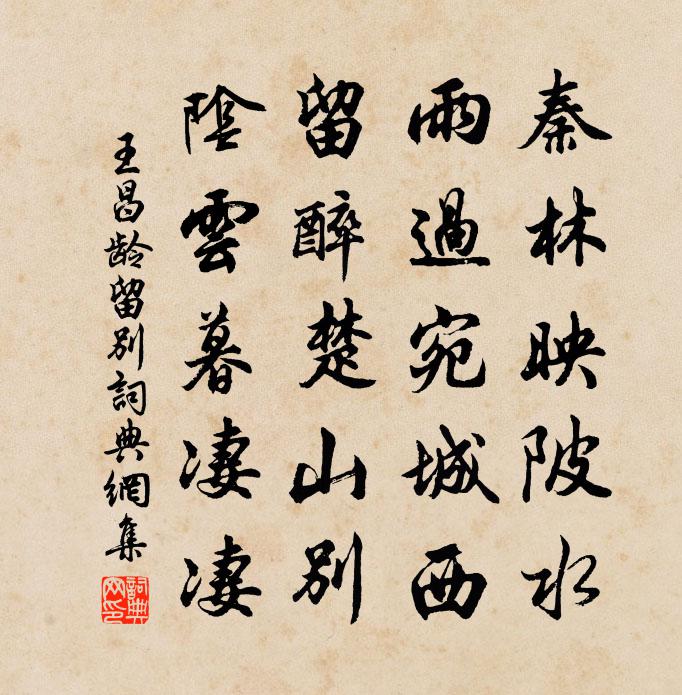 秦林映陂水
雨過宛城西
留醉楚山別
陰雲暮凄凄
王昌龄留别詞典網集
詞典网印